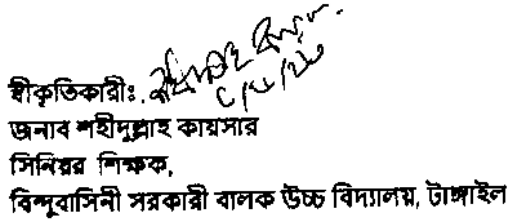 স্বীকৃতিকারীঃ
জনাব শহীদুল্লাহ কায়সার
সিনিয়র শিক্ষক,
বিন্দুবাসিনী সরকারী বালক উচ্চ বিদ্যালয়, টাঙ্গাইল